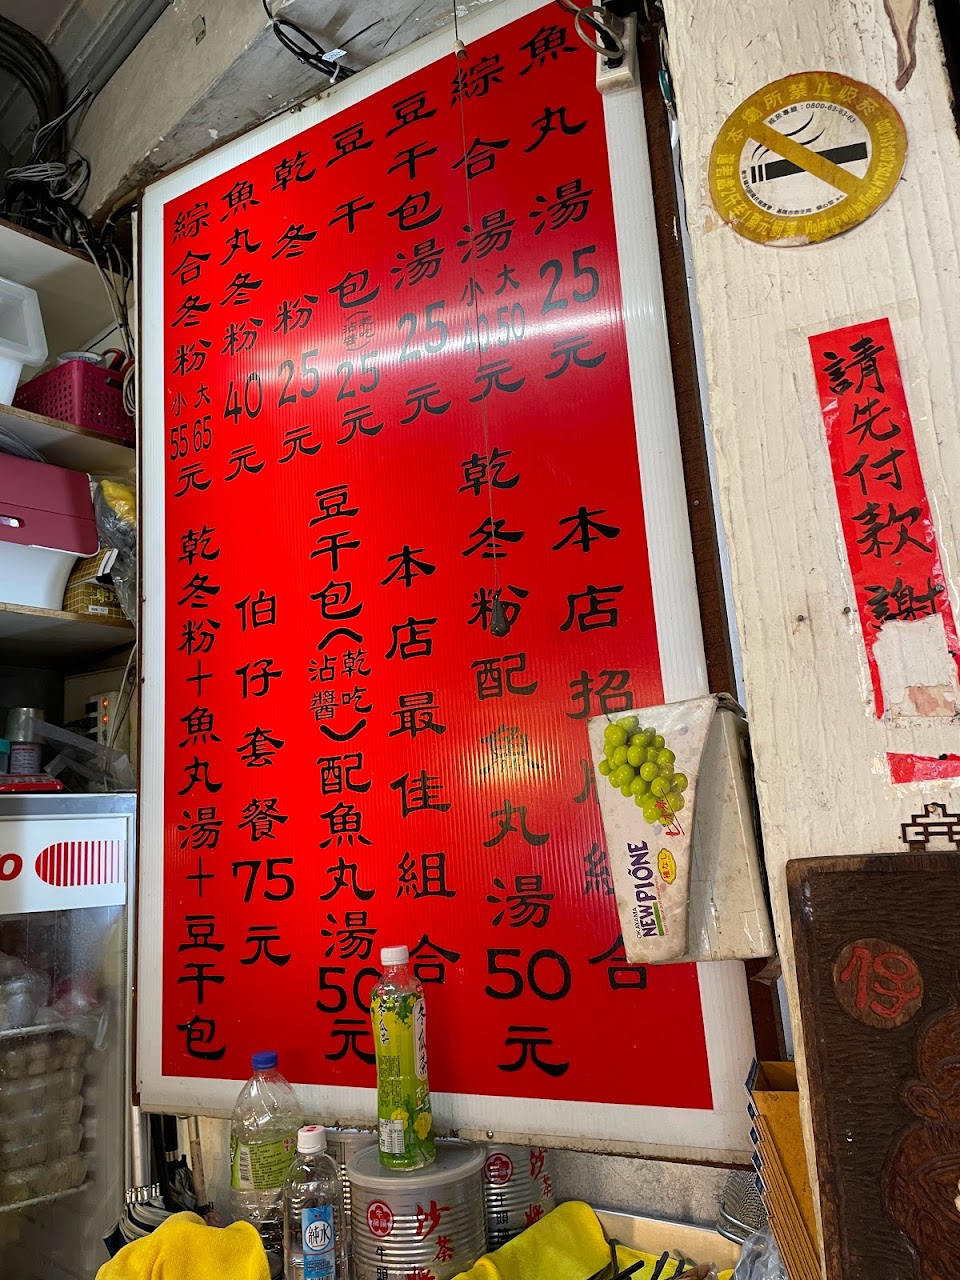 魚丸湯25元
綜合湯 小40 大50元
豆干包湯25元
豆干包(乾吃沾醬)25元
乾冬粉25元
魚丸冬粉40元
綜合冬粉 小55 大65元
本店招牌組合
乾冬粉配魚丸湯50元
本店最佳組合
豆干包(乾吃沾醬)配魚丸湯50元
伯仔套餐75元
乾冬粉+魚丸湯+豆干包
本場所禁止吸菸
戒菸專線:0800-63-63-63
請先付款謝
OKAYAMA
NEWPIONE
冬瓜茶
冬瓜茶
純水
牛頭
沙茶
沙茶
牛頭
19